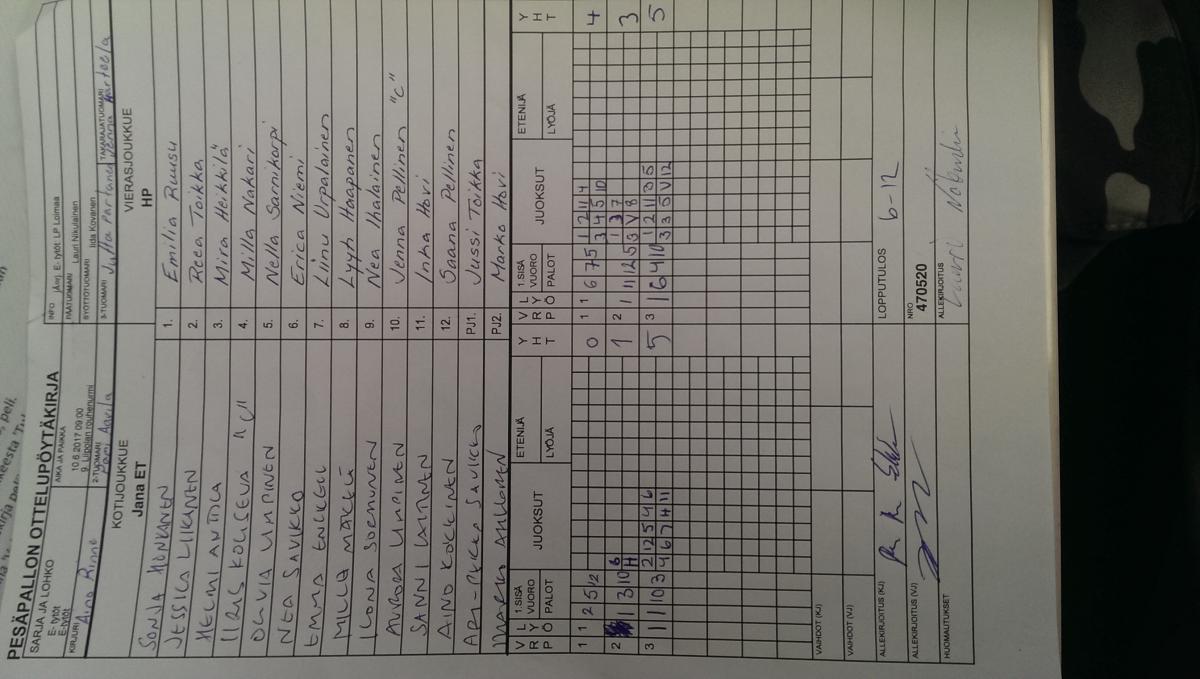 PESÄPALLON OTTELUPÖYTÄKIRJA
SARJA JA LOHKO
E- tytöt
E-tytöt
AIKA JA PAIKKA
10.6.2017 09:00
INFO
LP Loimaa
PÄÄTUOMARI
Lauri Nikulainen
KIRJURI
Aino Rinne
2-TUOMARI
SYÖTTÖTUOMARI
Iida Kovanen
3-TUOMARI
Jutta Partanen
TAKARAJATUOMARI
KOTIJOUKKUE
Jana ET
VIERASJOUKKUE
HP
SONJA HONKANEN 1. Emilia Ruusu
JESSICA LIIKANEN 2. Reea Toikka
HELMI ANTTILA 3. Mira Heikkilä
IIRIS 4. Milla Nakari
OLIVIA UIMPINEN 5. Nella Sarnikorpi
NEEA SAVIKKO 6. Erica Niemi
EMMA 7. Liinu Urpalainen
MILLA MÄKELÄ 8. Lyyti Haapanen
ILONA SORMUNEN 9. Nea Ihalainen
AURORA UIMPINEN 10. Jenna Pellinen "C"
SANNI LAITINEN 11. Inka Hovi
AINO KOKKINEN 12. Saana Pellinen
ARI-PEKKA SAVIKKO PJ1. Jussi Toikka
PJ2. Marko Hovi
V R P L Y Ö 1.SISÄ VUORO PALOT JUOKSUT ETENIJÄ LYÖJÄ Y H T V R P L Y Ö 1.SISÄ VUORO PALOT JUOKSUT ETENIJÄ LYÖJÄ Y H T
1 1 2 5 12 0 1 1 6 7 5 1 2 11 4 4
3 4 5 10
2 1 3 10 6 1 2 1 11 12 5 1 3 7 3
11 3 V 8
3 1 1 10 3 2 12 5 4 6 5 3 1 6 4 10 1 2 11 3 5 5
4 6 7 4 11 3 3 5 V 12
VAIHDOT (KJ)
VAIHDOT (VJ)
ALLEKIRJOITUS (KJ)
LOPPUTULOS 6-12
ALLEKIRJOITUS (VJ)
NRO
470520
HUOMAUTUKSET
ALLEKIRJOITUS